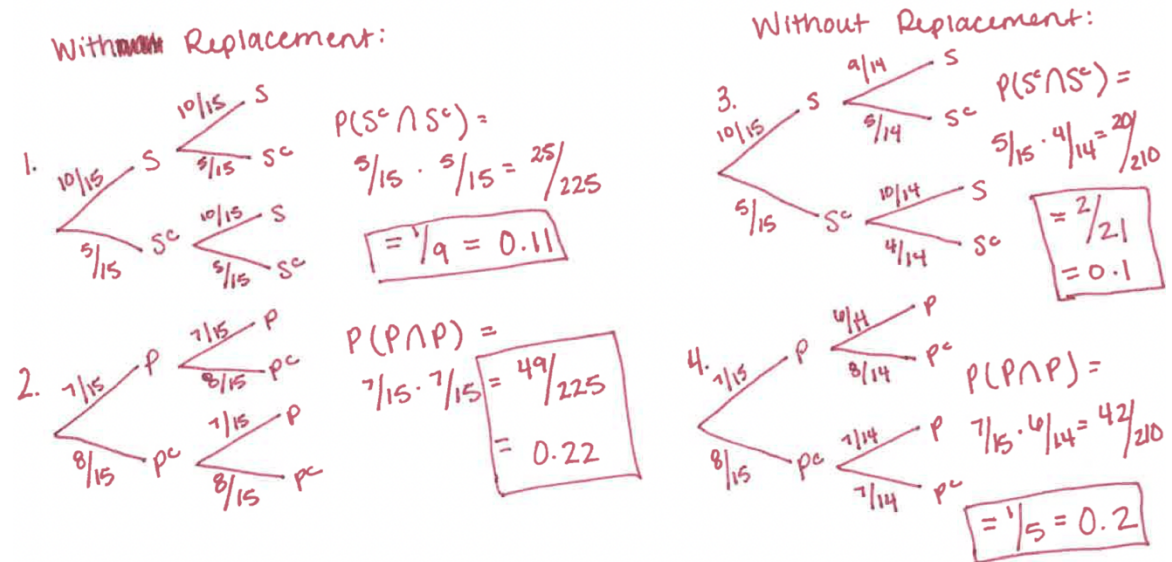 With Replacement:
1.
10/15 S
10/15 S
5/15 Sᶜ
5/15 Sᶜ
10/15 S
5/15 Sᶜ
P(Sᶜ ∩ Sᶜ) =
5/15 · 5/15 = 25/225
= 1/9 = 0.11
2.
7/15 P
7/15 P
8/15 Pᶜ
8/15 Pᶜ
7/15 P
8/15 Pᶜ
P(P∩P) =
7/15 · 7/15 = 49/225
= 0.22
Without Replacement:
3.
10/15 S
9/14 S
5/14 Sᶜ
5/15 Sᶜ
10/14 S
4/14 Sᶜ
P(Sᶜ∩Sᶜ) =
5/15 · 4/14 = 20/210
= 2/21
= 0.1
4.
7/15 P
6/14 P
8/14 Pᶜ
8/15 Pᶜ
7/14 P
7/14 Pᶜ
P(P∩P) =
7/15 · 6/14 = 42/210
= 1/5 = 0.2